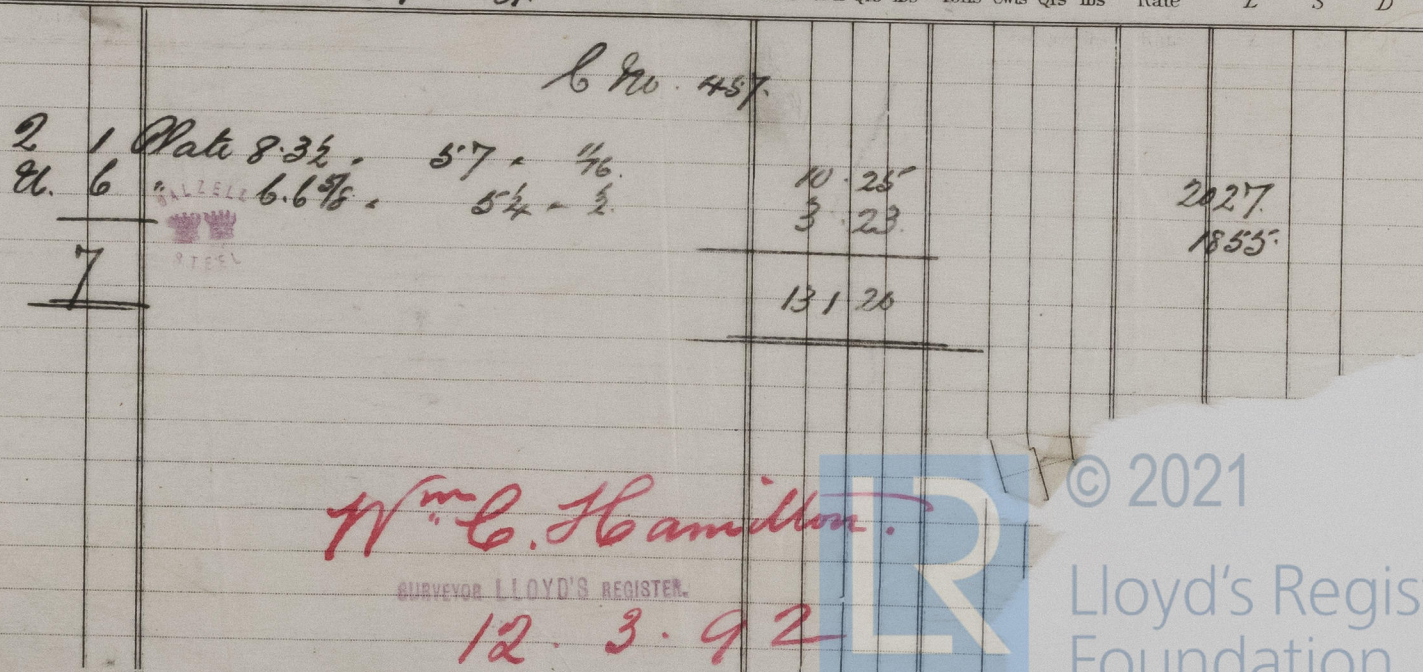 Tons Cwts Qrs lbs Rate £ S D
C No. 457.
2 1 Plate 8.3½ . 57 . 11/16. 10 . 25 2027.
U. 6 " 6.6⅝ . 54 - ½. 3 . 23. 1855.
DALZELL
STEEL
7 13 1 20
Wm C. Hamilton.
SURVEYOR LLOYD'S REGISTER.
12 . 3 . 92
LR
© 2021
Lloyd's Regis
Foundation